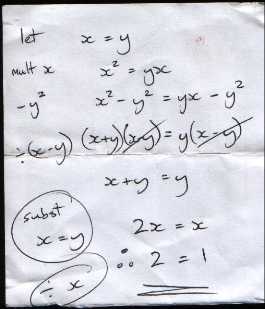 let x = y
mult x x² = yx
-y² x² - y² = yx - y²
÷(x-y) (x+y)(x-y) = y(x-y)
x+y = y
subst x=y 2x = x
÷ x ∴ 2 = 1